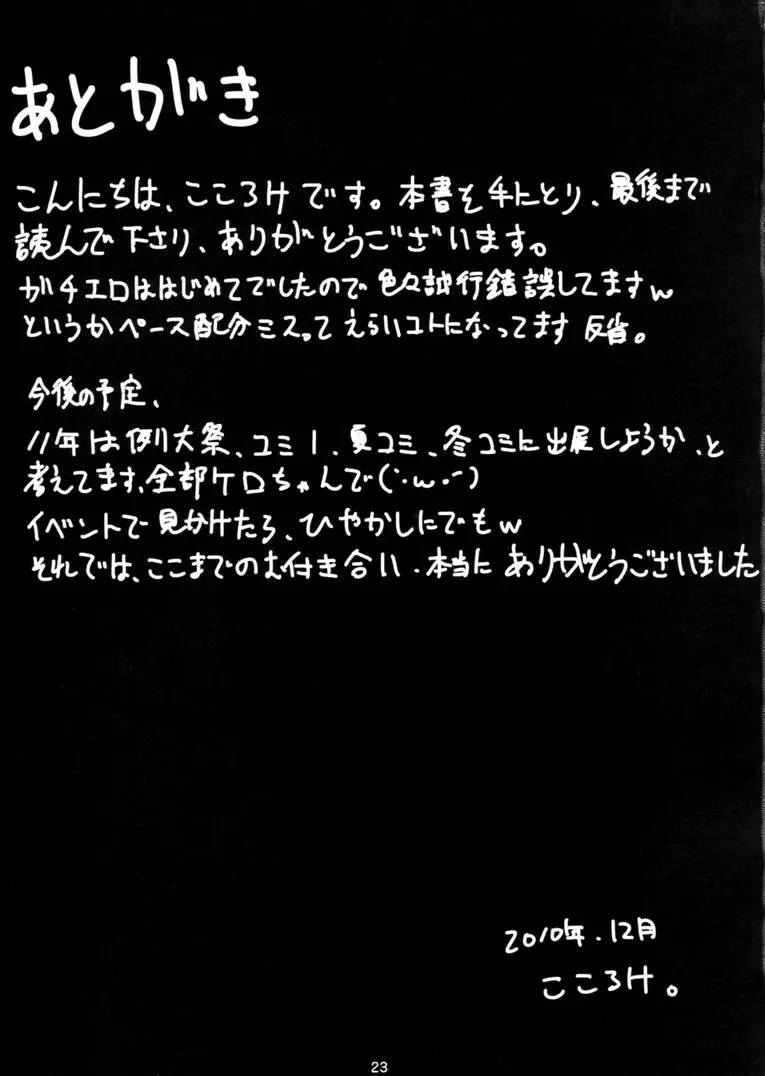 あとがき
こんにちは、こころけです。本書を手にとり、最後まで
読んで下さり、ありがとうございます。
ガチエロははじめてでしたので色々試行錯誤してますw
というかペース配分ミスってえらいコトになってます 反省。
今後の予定、
11年は例大祭、コミ1、夏コミ、冬コミに出展しようか、と
考えてます、全部ケロちゃんで(`・ω・´)
イベントで見かけたら、ひやかしにでもw
それでは、ここまでのお付き合い、本当にありがとうございました
2010年.12月
こころけ。
23